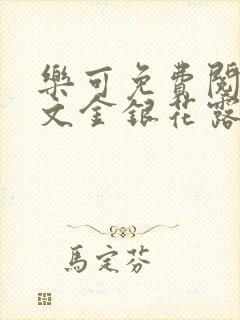 樂可免費閱
文金銀花露
馬定芬